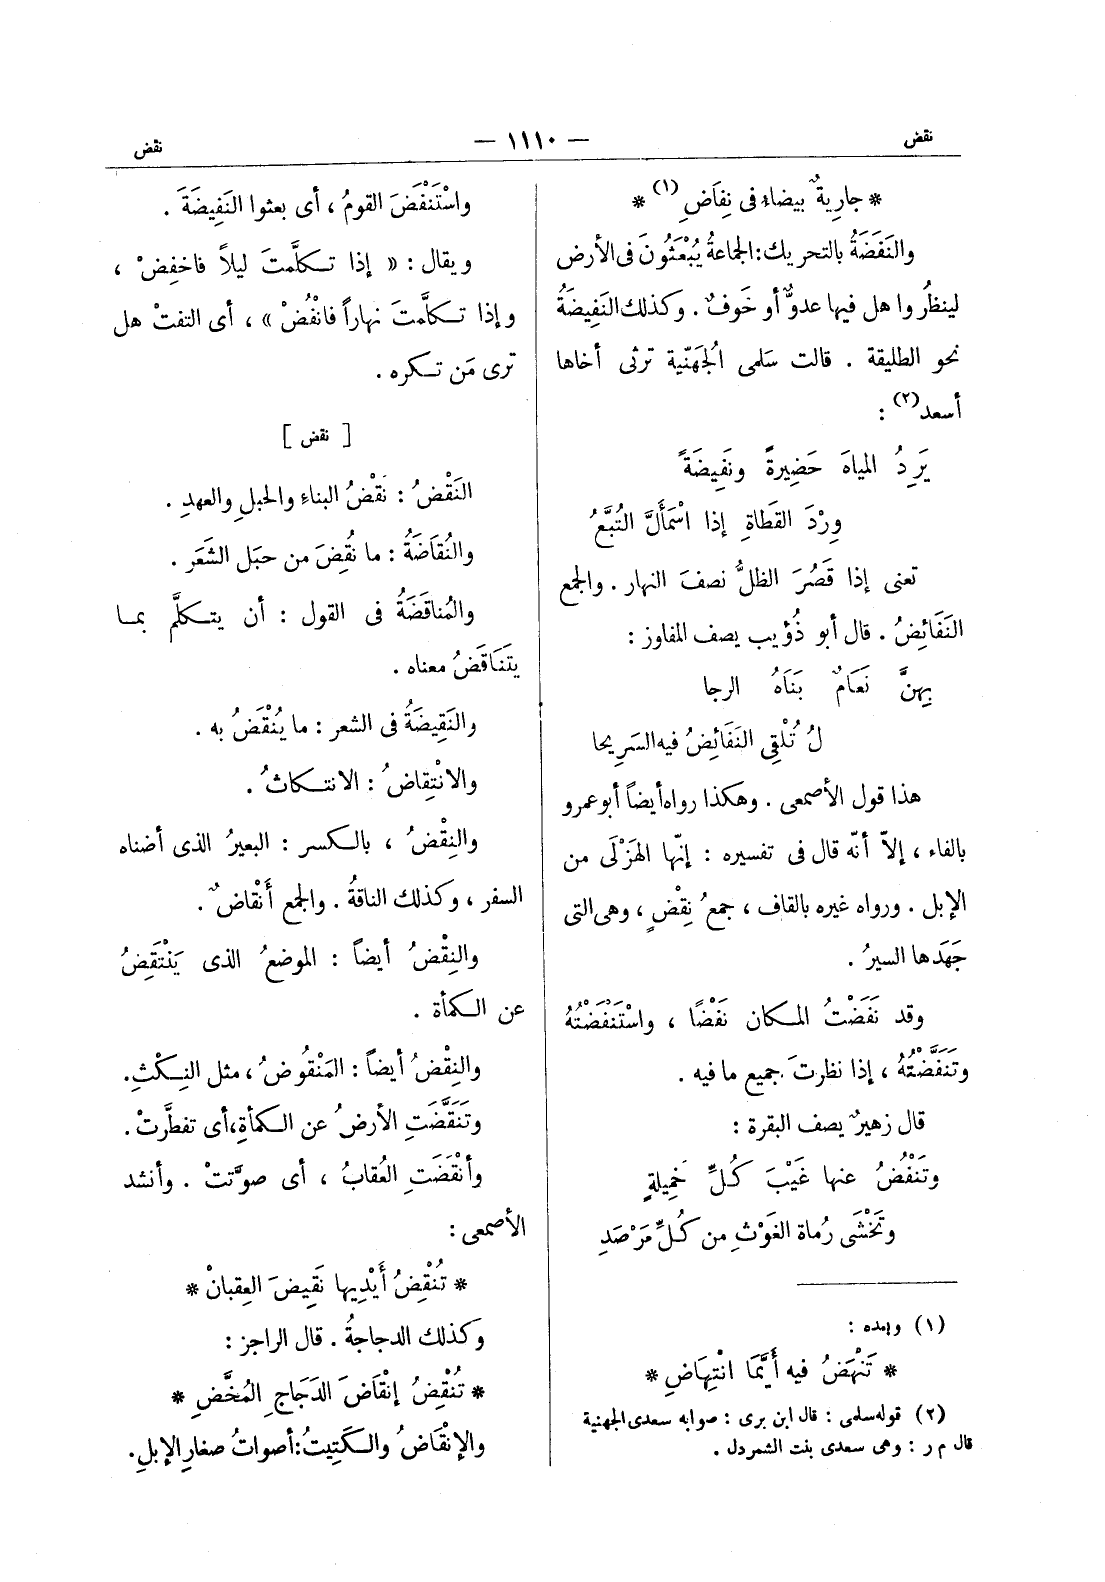 نقض
— ١١١٠ —
نقض
* جارِيةٌ بيضاء فى نِفَاضِ (١) *
والنَفَضَةُ بالتحريك: الجماعةُ يُبْعَثُونَ فى الأرض
لينظُروا هل فيها عدوٌّ أو خَوفٌ . وكذلك النَفِيضَةُ
نحو الطليقة . قالت سَلمى الجُهَنّية ترثى أخاها
أسعد (٢) :
يَرِدُ المياهَ حَضِيرةً ونَفِيضَةً
وِرْدَ القَطَاةِ إذا اسْمَأَلَّ التُبَّعُ
تعنى إذا قَصُرَ الظلُّ نصفَ النهار . والجمع
النَفَائِضُ . قال أبو ذُؤيب يصف المفاوز :
بِهنَّ نَعَامٌ بَنَاهُ الرجا
لُ تُلْقِى النَفَائِضُ فيه السَرِيحا
هذا قول الأصمعى . وهكذا رواه أيضاً أبو عمرو
بالفاء ، إلاّ أنّه قال فى تفسيره : إنّها الهَزْلَى من
الإبل . ورواه غيره بالقاف ، جمعُ نِقْضٍ ، وهى التى
جَهَدها السيرُ .
وقد نَفَضْتُ المكان نَفْضًا ، واسْتَنْفَضْتُهُ
وتَنَفَّضْتُهُ ، إذا نظرتَ جميع ما فيه .
قال زهيرٌ يصف البقرة :
وتَنْفُضُ عنها غَيْبَ كُلِّ خَمِيلةٍ
وتَخْشَى رُماة الغَوْثِ من كُلِّ مَرْصَدِ
(١) وبعده :
* تَنْهَضُ فيه أَيَّمَا انْتِهَاضِ *
(٢) قوله سلمى : قال ابن برى : صوابه سعدى الجهنية
قال م ر : وهى سعدى بنت الشمردل .
واسْتَنْفَضَ القومُ ، أى بعثوا النَفِيضَةَ .
ويقال : « إذا تكلَّمتَ ليلاً فاخفِضْ ،
وإذا تكلَّمتَ نهاراً فانْفُضْ » ، أى التفتْ هل
ترى مَن تكره .
[ نقض ]
النَقْضُ : نَقْضُ البناءِ والحبلِ والعهدِ .
والنُقَاضَةُ : ما نُقِضَ من حبَل الشَعَر .
والمُناقَضَةُ فى القول : أن يتكلَّم بما
يتَنَاقَضُ معناه .
والنَقِيضَةُ فى الشعر : ما يُنْقَضُ به .
والانْتِقاضُ : الانتكاثُ .
والنِقْضُ ، بالكسر : البعيرُ الذى أضناه
السفر ، وكذلك الناقةُ . والجمع أَنْقاضٌ .
والنِقْضُ أيضاً : الموضعُ الذى يَنْتَقِضُ
عن الكمأة .
والنِقْضُ أيضاً : المَنْقُوضُ ، مثل النِكْثِ .
وتَنَقَّضَتِ الأرضُ عن الكمأةِ ، أى تفطَّرتْ .
وأنْقَضَتِ العُقابُ ، أى صوَّتتْ . وأنشد
الأصمعى :
* تُنْقِضُ أَيْدِيها نَقِيضَ العِقبانْ *
وكذلك الدجاجةُ . قال الراجز :
* تُنْقِضُ إنْقَاضَ الدَجَاجِ المُخَّضِ *
والإنْقَاضُ والكَتِيتُ: أصواتُ صغارِ الإبلِ .